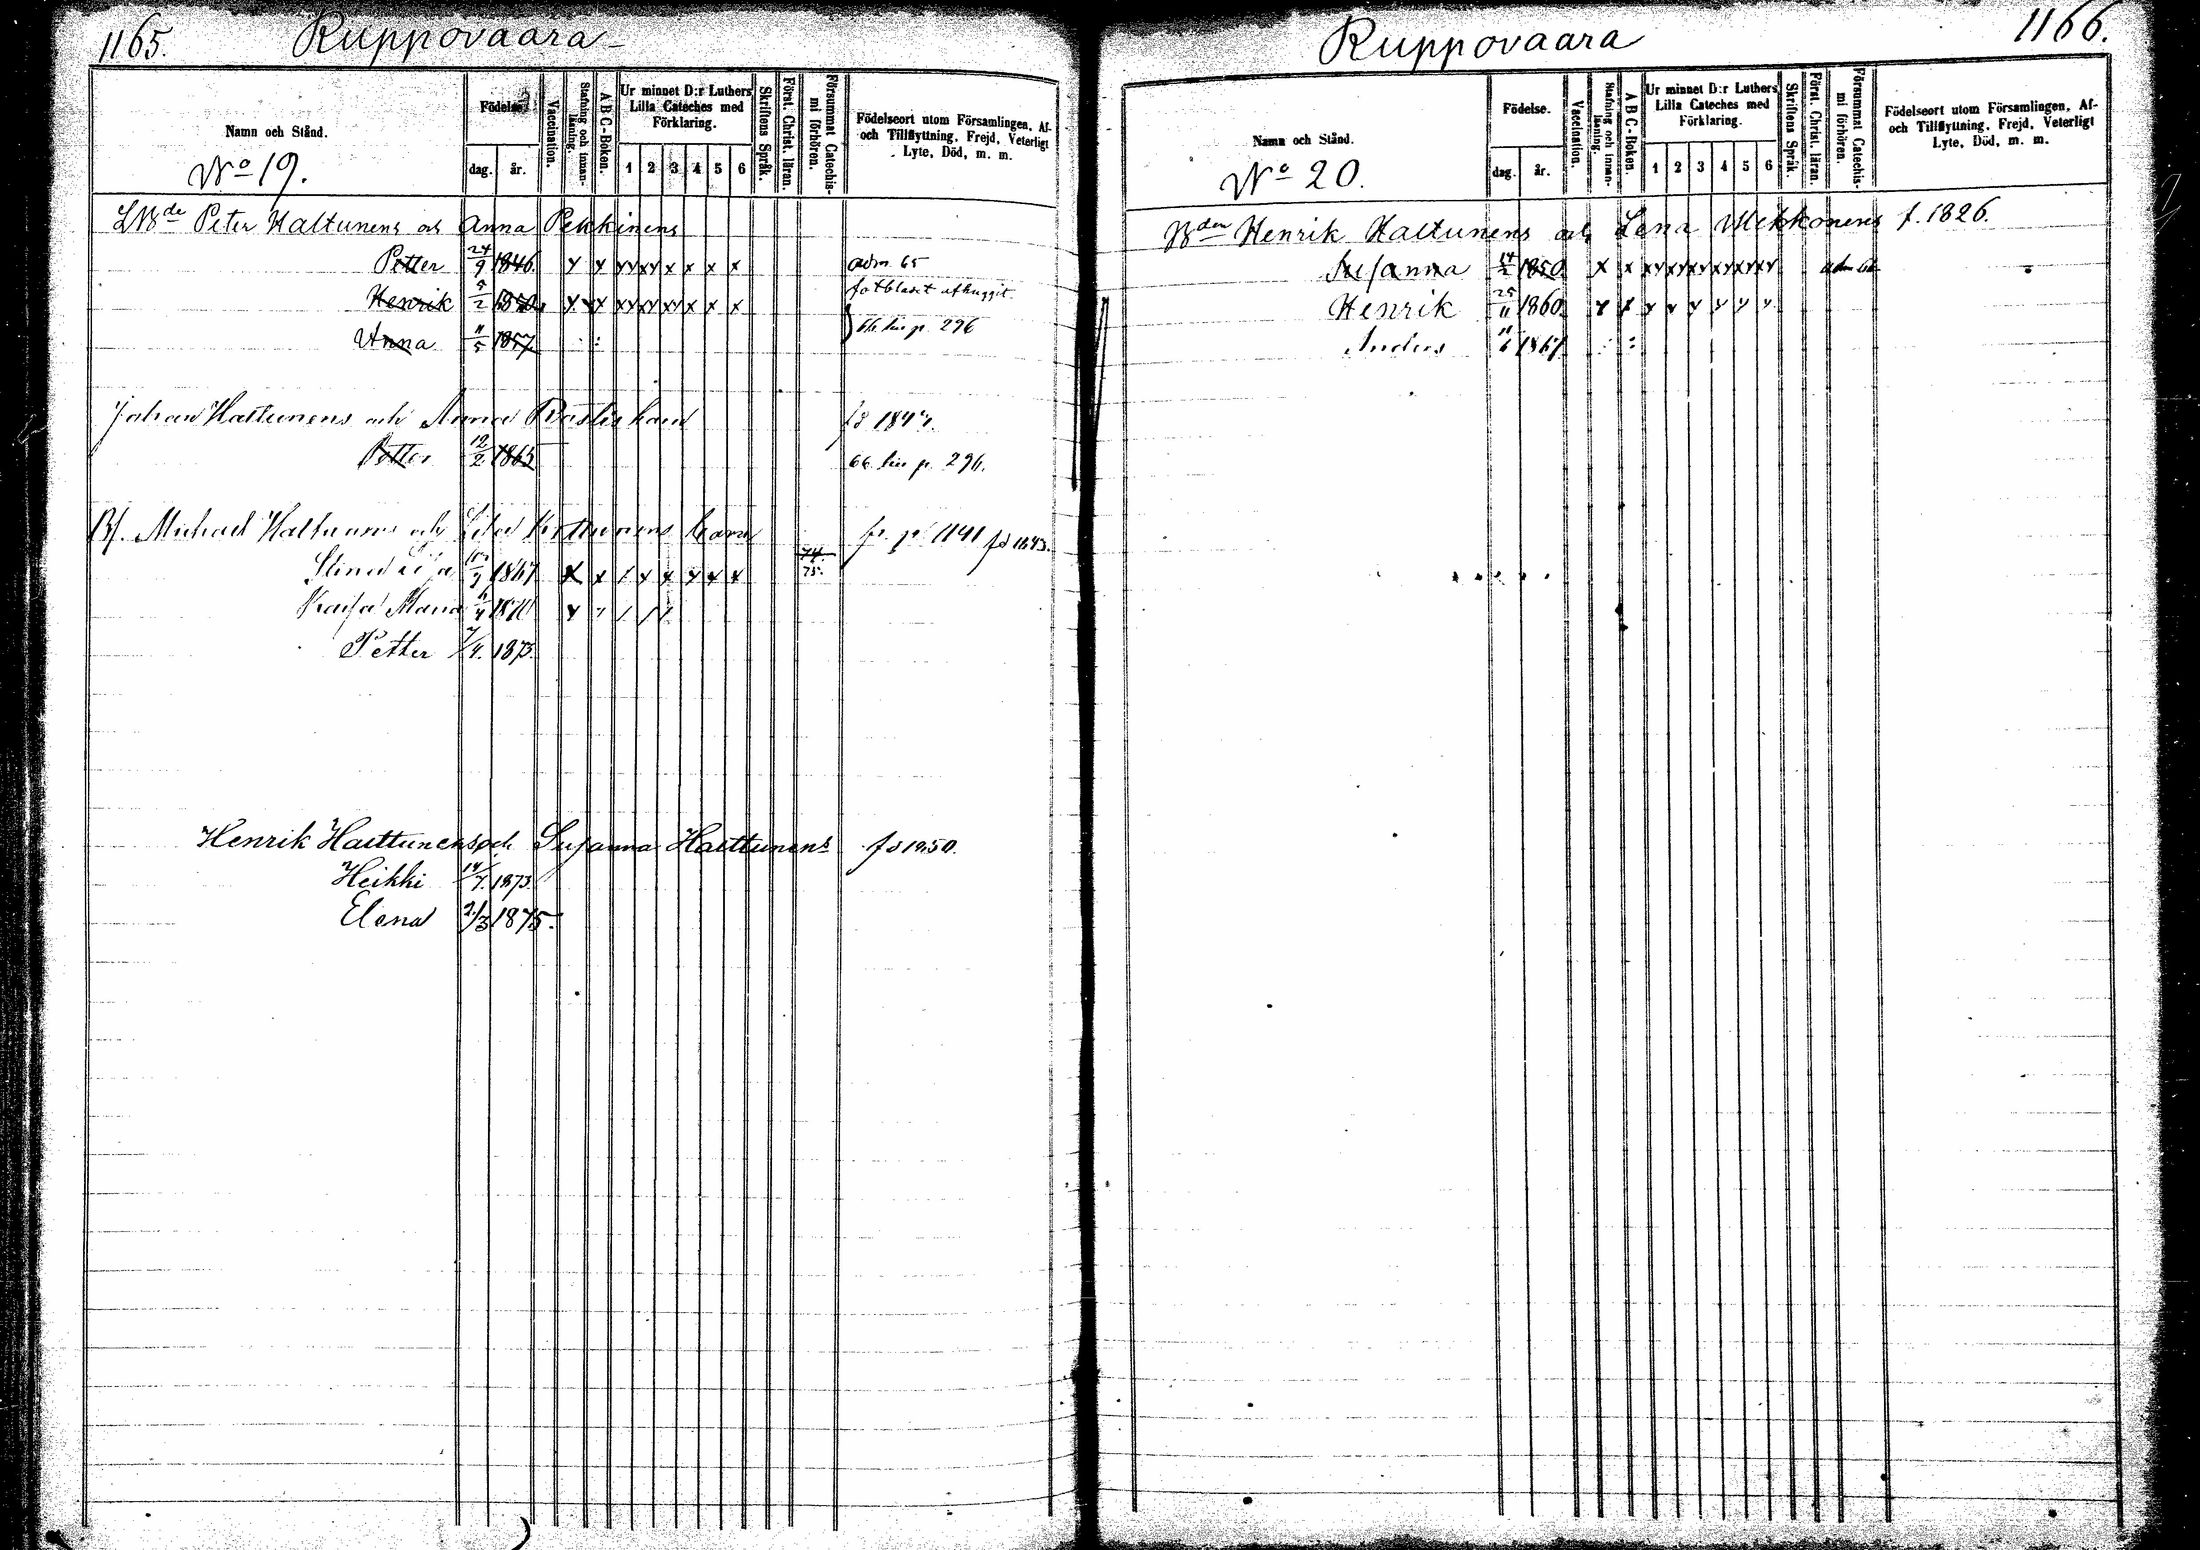 1165. Ruppovaara
Namn och Stånd.
No 19.
Födelse.
dag. år.
Vaccination.
Stafning och innanläsning.
A B C-Boken.
Ur minnet D:r Luthers Lilla Cateches med Förklaring.
1 2 3 4 5 6
Skriftens Språk.
Först. Christ. läran.
Försummat Catechismi förhören.
Födelseort utom Församlingen, Af- och Tillflyttning, Frejd, Veterligt Lyte, Död, m. m.
Peter Haltunens och Anna Pekkinens
Petter 24/9 1846. x x xx xx x x x x adm. 65
fotbladet afhuggit
Henrik 5/2 1850. x x x xx xx xx x x x
Anna 11/5 1857. 66 liu p. 296
Johan Hattunens och Anna fd 184
Petter 12/2 1865 66 liu p. 296.
Michael Hattunens och Kettunens barn fr. p. 1141 fd 1843.
Stina 1867 x x / x x x x x 74. 75.
Kaisa Maria 1870
Petter 7/4. 1873.
Henrik Haittunens och Susanna Haittunens fd 1850.
Heikki 14/7. 1873.
Elena 2/3 1875.
Ruppovaara 1166.
Namn och Stånd.
No 20.
Födelse.
dag. år.
Vaccination.
Stafning och innanläsning.
A B C-Boken.
Ur minnet D:r Luthers Lilla Cateches med Förklaring.
1 2 3 4 5 6
Skriftens Språk.
Först. Christ. läran.
Försummat Catechismi förhören.
Födelseort utom Församlingen, Af- och Tillflyttning, Frejd, Veterligt Lyte, Död, m. m.
Henrik Haltunens och Lena Mekkonens f. 1826.
Susanna 14/2 1850. x x xx xx xx xx xx xx adm 66
Henrik 25/11 1860. x x x x x x x x
Anders 1867